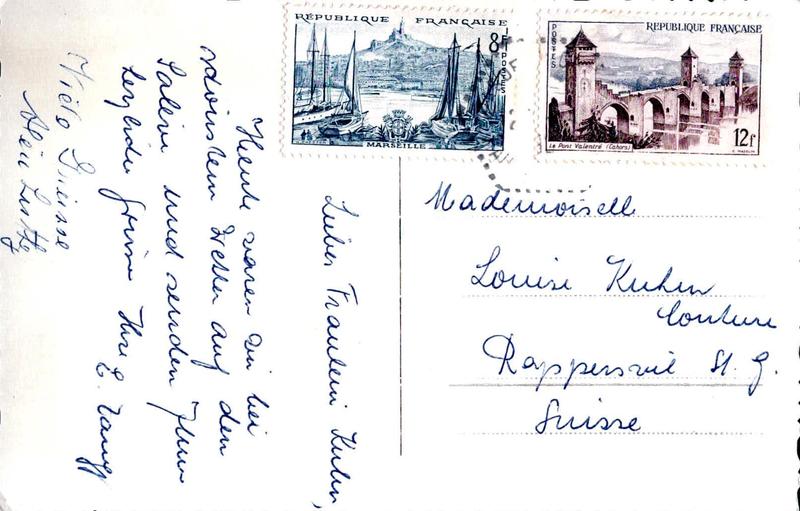 RÉPUBLIQUE FRANÇAISE
8F
POSTES
MARSEILLE
POSTES
RÉPUBLIQUE FRANÇAISE
12f
Le Pont Valentré (Cahors)
Liebes Fräulein Kuhn,
Heute waren wir bei
schönstem Wetter auf den
Salève und senden Ihnen
herzliche Grüsse Ihre E.
Viele Grüsse
Mademoiselle
Louise Kuhn
Couture
Rapperswil St. G.
Suisse